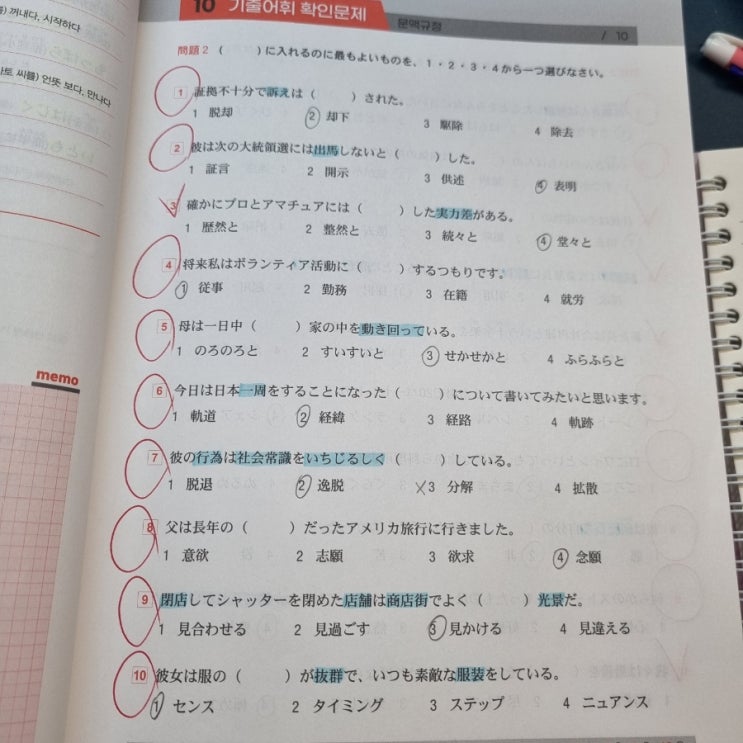 ) 꺼내다, 시작하다
씨를) 언뜻 보다, 만나다
memo
10 기출어휘 확인문제
문맥규정
/ 10
問題2 ( )に入れるのに最もよいものを、1・2・3・4から一つ選びなさい。
1 証拠不十分で訴えは ( ) された。
1 脱却 2 却下 3 駆除 4 除去
2 彼は次の大統領選には出馬しないと ( ) した。
1 証言 2 開示 3 供述 4 表明
3 確かにプロとアマチュアには ( ) した実力差がある。
1 歴然と 2 整然と 3 続々と 4 堂々と
4 将来私はボランティア活動に ( ) するつもりです。
1 従事 2 勤務 3 在籍 4 就労
5 母は一日中 ( ) 家の中を動き回っている。
1 のろのろと 2 すいすいと 3 せかせかと 4 ふらふらと
6 今日は日本一周をすることになった ( ) について書いてみたいと思います。
1 軌道 2 経緯 3 経路 4 軌跡
7 彼の行為は社会常識をいちじるしく ( ) している。
1 脱退 2 逸脱 3 分解 4 拡散
8 父は長年の ( ) だったアメリカ旅行に行きました。
1 意欲 2 志願 3 欲求 4 念願
9 閉店してシャッターを閉めた店舗は商店街でよく ( ) 光景だ。
1 見合わせる 2 見過ごす 3 見かける 4 見違える
10 彼女は服の ( ) が抜群で、いつも素敵な服装をしている。
1 センス 2 タイミング 3 ステップ 4 ニュアンス